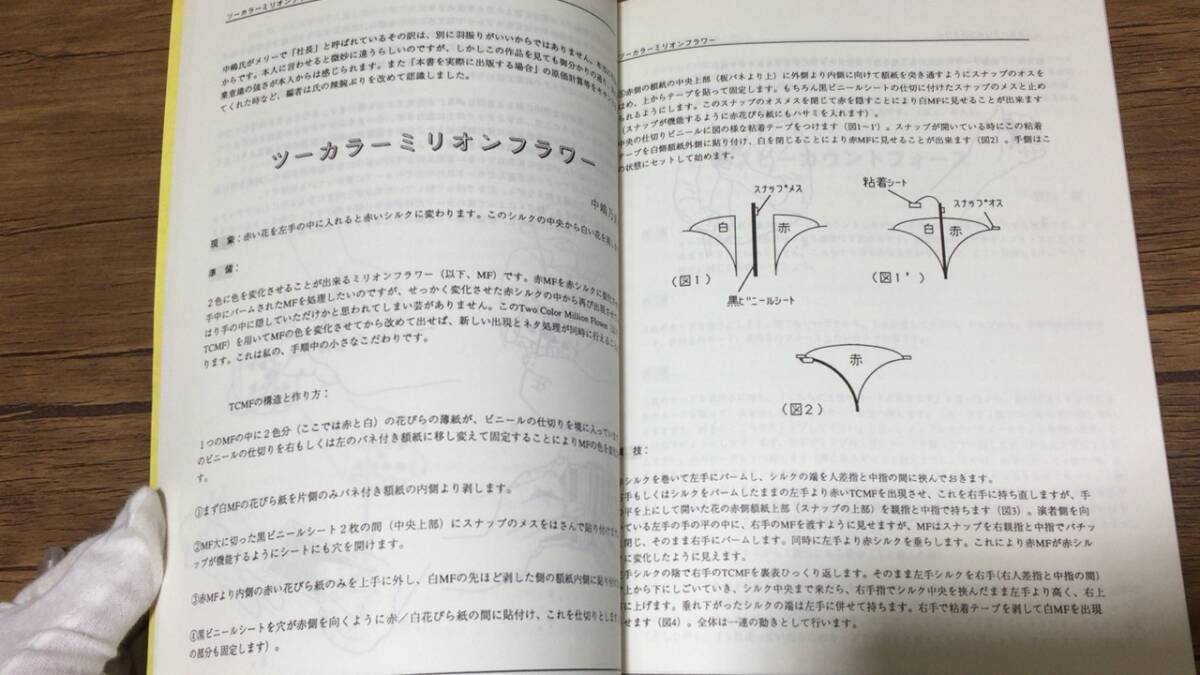 ツーカラーミリオンフラワー
中嶋氏がメリーで「社長」と呼ばれているその訳は、別に羽振りがいいからではありません。
からです。本人に言わせると微妙に違うらしいのですが、しかしこの作品を見ても御分かりの通り、
業意識の強さが本人からは感じられます。また「本書を実際に出版する場合」の原価計算等を
てくれた時など、編者は氏の辣腕ぶりを改めて認識しました。
ツーカラーミリオンフラワー
中嶋乃
現 象：赤い花を左手の中に入れると赤いシルクに変わります。このシルクの中央から白い花を
準 備：
2色に色を変化させることが出来るミリオンフラワー（以下、MF）です。赤MFを赤シルクに変化
手中にパームされたMFを処理したいのですが、せっかく変化させた赤シルクの中から再び出現させて
はり手の中に隠していただけかと思われてしまい芸がありません。このTwo Color Million Flower（以下
TCMF）を用いてMFの色を変化させてから改めて出せば、新しい出現とネタ処理が同時に行えること
ります。これは私の、手順中の小さなこだわりです。
TCMFの構造と作り方：
1つのMFの中に2色分（ここでは赤と白）の花びらの薄紙が、ビニールの仕切りを境に入っています
のビニールの仕切りを右もしくは左のバネ付き額紙に移し変えて固定することによりMFの色を
す。
①まず白MFの花びら紙を片側のみバネ付き額紙の内側より剥します。
②MF大に切った黒ビニールシート2枚の間（中央上部）にスナップのメスをはさんで貼り付け
ップが機能するようにシートにも穴を開けます。
③赤MFより内側の赤い花びら紙のみを上手に外し、白MFの先ほど剥した側の額紙内側に貼り付け
④黒ビニールシートを穴が赤側を向くように赤／白花びら紙の間に貼付け、これを仕切りとします
の部分も固定します）。
ツーカラーミリオンフラワー
⑤赤側の額紙の中央上部（板バネより上）に外側より内側に向けて額紙を突き通すようにスナップのオスを
はめ、上からテープを貼って固定します。もちろん黒ビニールシートの仕切に付けたスナップのメスと止め
られるようにします。このスナップのオスメスを閉じて赤を隠すことにより白MFに見せることが出来ます
（スナップが機能するように赤花びら紙にもハサミを入れます）。
中央の仕切りビニールに図の様な粘着テープをつけます（図1～1'）。スナップが開いている時にこの粘着
テープを白側額紙外側に貼り付け、白を閉じることにより赤MFに見せることが出来ます（図2）。手側はこ
の状態にセットして始めます。
スナップメス
白
赤
（図1）
黒ビニールシート
粘着シート
スナップオス
白
赤
（図1'）
赤
（図2）
技：
赤シルクを巻いて左手にパームし、シルクの端を人差指と中指の間に挟んでおきます。
右手もしくはシルクをパームしたままの左手より赤いTCMFを出現させ、これを右手に持ち直しますが、手
平を上にして開いた花の赤側額紙上部（スナップの上部）を親指と中指で持ちます（図3）。演者側を向
ている左手の手の平の中に、右手のMFを渡すように見せますが、MFはスナップを右親指と中指でパチッ
閉じ、そのまま右手にパームします。同時に左手より赤シルクを垂らします。これにより赤MFが赤シル
に変化したように見えます。
手シルクの陰で右手のTCMFを裏表ひっくり返します。そのまま左手シルクを右手（右人差指と中指の間）
上から下にしごいていき、シルク中央まで来たら、右手指でシルク中央を挟んだまま左手より高く、右上
に上げます。垂れ下がったシルクの端は左手に併せて持ちます。右手で粘着テープを剥して白MFを出現
せます（図4）。全体は一連の動きとして行います。